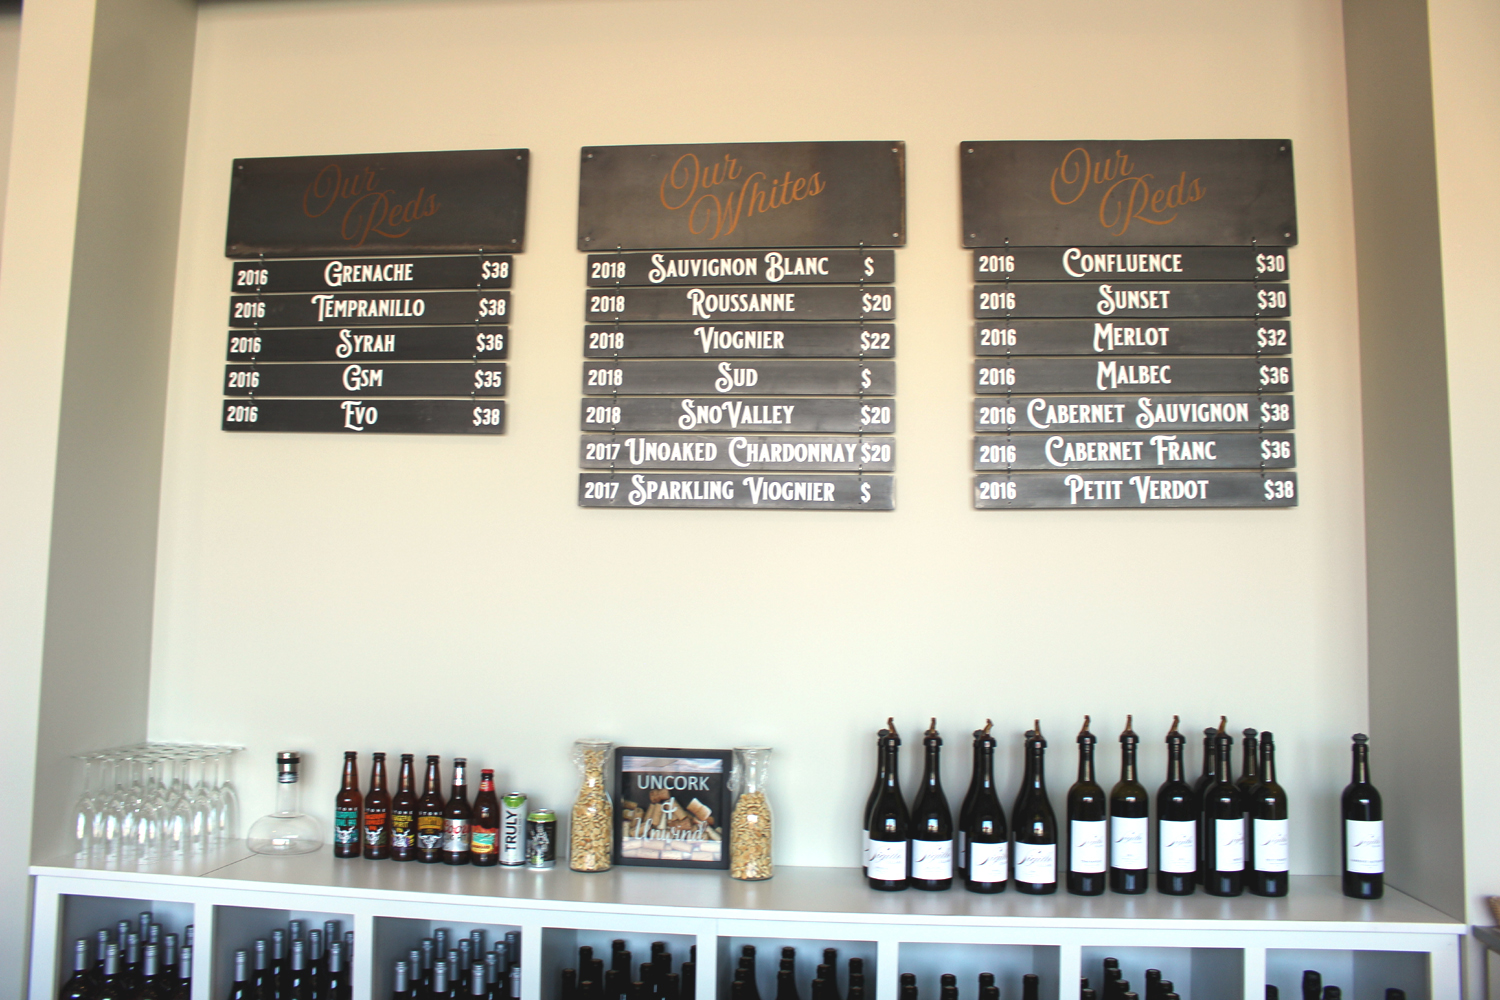 Our
Reds
2016 Grenache $38
2016 Tempranillo $38
2016 Syrah $36
2016 GSM $35
2016 Evo $38
Our
Whites
2018 Sauvignon Blanc $
2018 Roussanne $20
2018 Viognier $22
2018 Sud $
2018 SnoValley $20
2017 Unoaked Chardonnay $20
2017 Sparkling Viognier $
Our
Reds
2016 Confluence $30
2016 Sunset $30
2016 Merlot $32
2016 Malbec $36
2016 Cabernet Sauvignon $38
2016 Cabernet Franc $36
2016 Petit Verdot $38
TRULY
UNCORK
&
Unwind